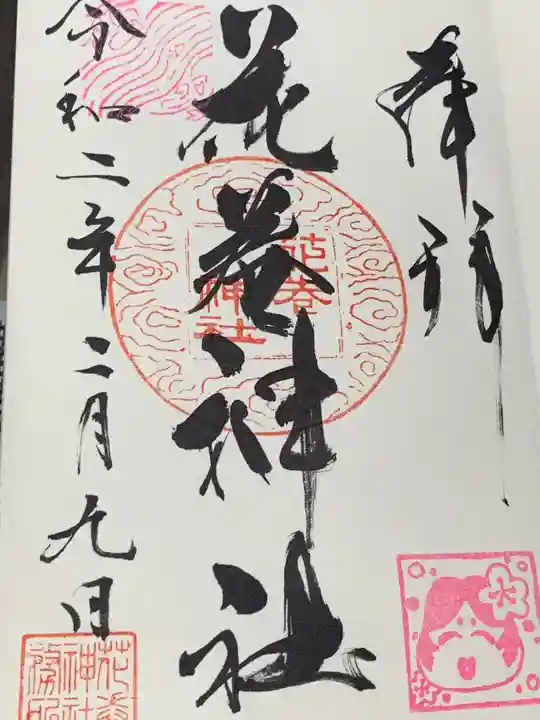 奉拝
花巻神社
花巻
神社
令和二年二月九日
花巻
神社
務所